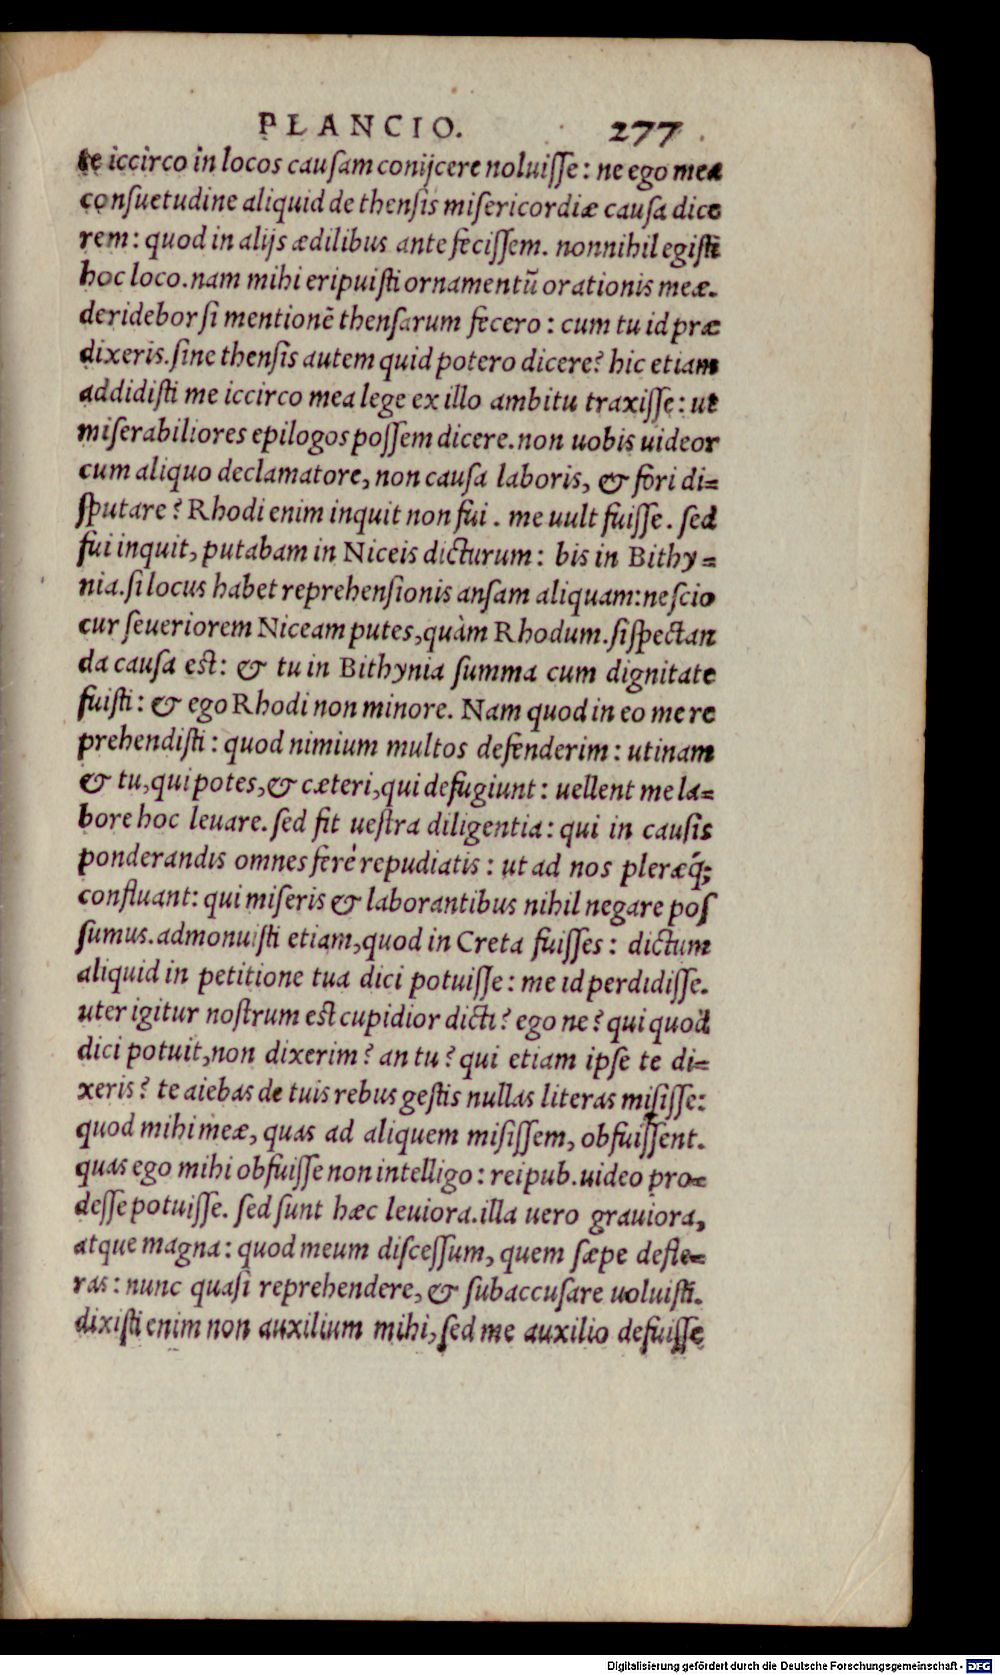 PLANCIO. 277
te iccirco in locos causam conijcere noluisse: ne ego mea
consuetudine aliquid de thensis misericordiæ causa dice
rem: quod in alijs ædilibus ante fecissem. nonnihil egisti
hoc loco. nam mihi eripuisti ornamentũ orationis meæ.
deridebor si mentionẽ thensarum fecero: cum tu id præ
dixeris. sine thensis autem quid potero dicere? hic etiam
addidisti me iccirco mea lege ex illo ambitu traxisse: ut
miserabiliores epilogos possem dicere. non uobis uideor
cum aliquo declamatore, non causa laboris, & fori di=
sputare? Rhodi enim inquit non fui. me uult fuisse. sed
fui inquit, putabam in Niceis dicturum: bis in Bithy=
nia. si locus habet reprehensionis ansam aliquam: nescio
cur seueriorem Niceam putes, quàm Rhodum. si spectan
da causa est: & tu in Bithynia summa cum dignitate
fuisti: & ego Rhodi non minore. Nam quod in eo me re
prehendisti: quod nimium multos defenderim: utinam
& tu, qui potes, & cæteri, qui defugiunt: uellent me la=
bore hoc leuare. sed fit uestra diligentia: qui in causis
ponderandis omnes ferè repudiatis: ut ad nos pleræq́;
confluant: qui miseris & laborantibus nihil negare pos
sumus. admonuisti etiam, quod in Creta fuisses: dictum
aliquid in petitione tua dici potuisse: me id perdidisse.
uter igitur nostrum est cupidior dicti? ego ne? qui quod
dici potuit, non dixerim? an tu? qui etiam ipse te di=
xeris? te aiebas de tuis rebus gestis nullas literas misisse:
quod mihi meæ, quas ad aliquem misissem, obfuissent.
quas ego mihi obfuisse non intelligo: reipub. uideo pro=
desse potuisse. sed sunt hæc leuiora. illa uero grauiora,
atque magna: quod meum discessum, quem sæpe defle=
ras: nunc quasi reprehendere, & subaccusare uoluisti.
dixisti enim non auxilium mihi, sed me auxilio defuisse
Digitalisierung gefördert durch die Deutsche Forschungsgemeinschaft - DFG